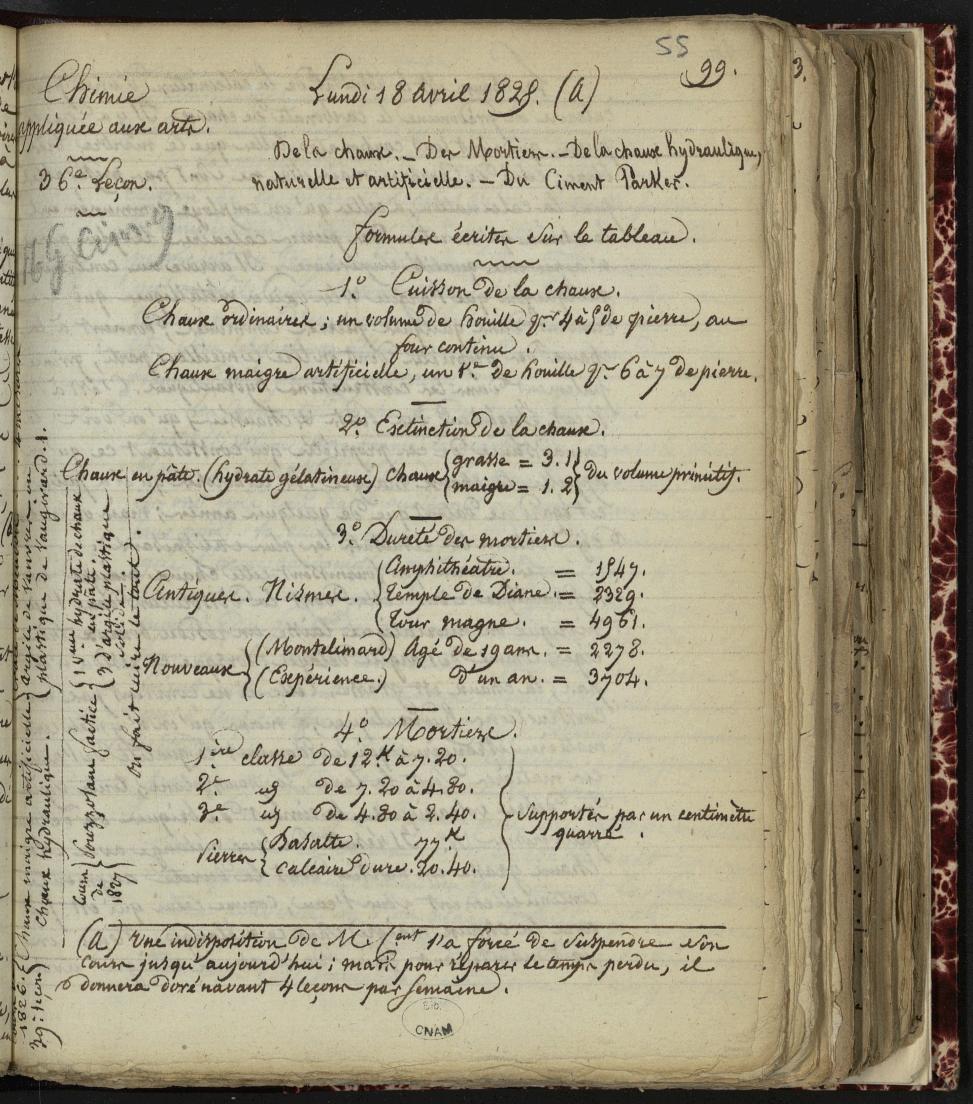 55
99.
Chimie
appliquée aux arts.
36e. Leçon.
Lundi 18 Avril 1825. (A)
De la chaux. _ Des Mortiers. _ De la chaux hydraulique,
naturelle et artificielle. _ Du Ciment Parker.
formules écrites sur le tableau.
1.° Cuisson de la chaux.
Chaux ordinaires; un volume de houille pr. 4 à 5 de pierre, au
four continu.
Chaux maigre artificielle, un v.e de houille pr. 6 à 7 de pierre.
2.° Extinction de la chaux.
Chaux en pâte. (hydrate gélatineux) chaux { grasse = 3.1 } du volume primitif.
maigre = 1.2
3.° Dureté des mortiers.
Antiques. Nismes. { Amphithéâtre. = 1547.
Temple de Diane. = 2329.
Tour magne. = 4961.
Nouveaux { (Montelimard) Agé de 19 ans. = 2278.
(Expérience.) d'un an. = 3704.
4.° Mortiers.
1ère classe de 12.K à 7.20.
2.e id de 7.20 à 4.80.
3.e id de 4.80 à 2.40.
Pierres { Basalte. 77.K
Calcaire dure. 20.40.
Supportés par un centimètre
quarré.
(A) Une indisposition de M. Cent l'a forcé de suspendre son
cours jusqu'aujourd'hui; mais pour réparer le temps perdu, il
donnera dorénavant 4 leçons par semaine.
1826.
39e. leçon
Chaux maigre artificielle { argile de Vanvres ou
Chaux hydraulique. { plastique de Vaugirard. 1.
4 mesures
Cours
de
1827
Pouzzolane factice { 1 v. un hydrate de chaux
en pâte.
3 d'argile plastique
solide.
on fait cuire le tout.
Bib.
CNAM